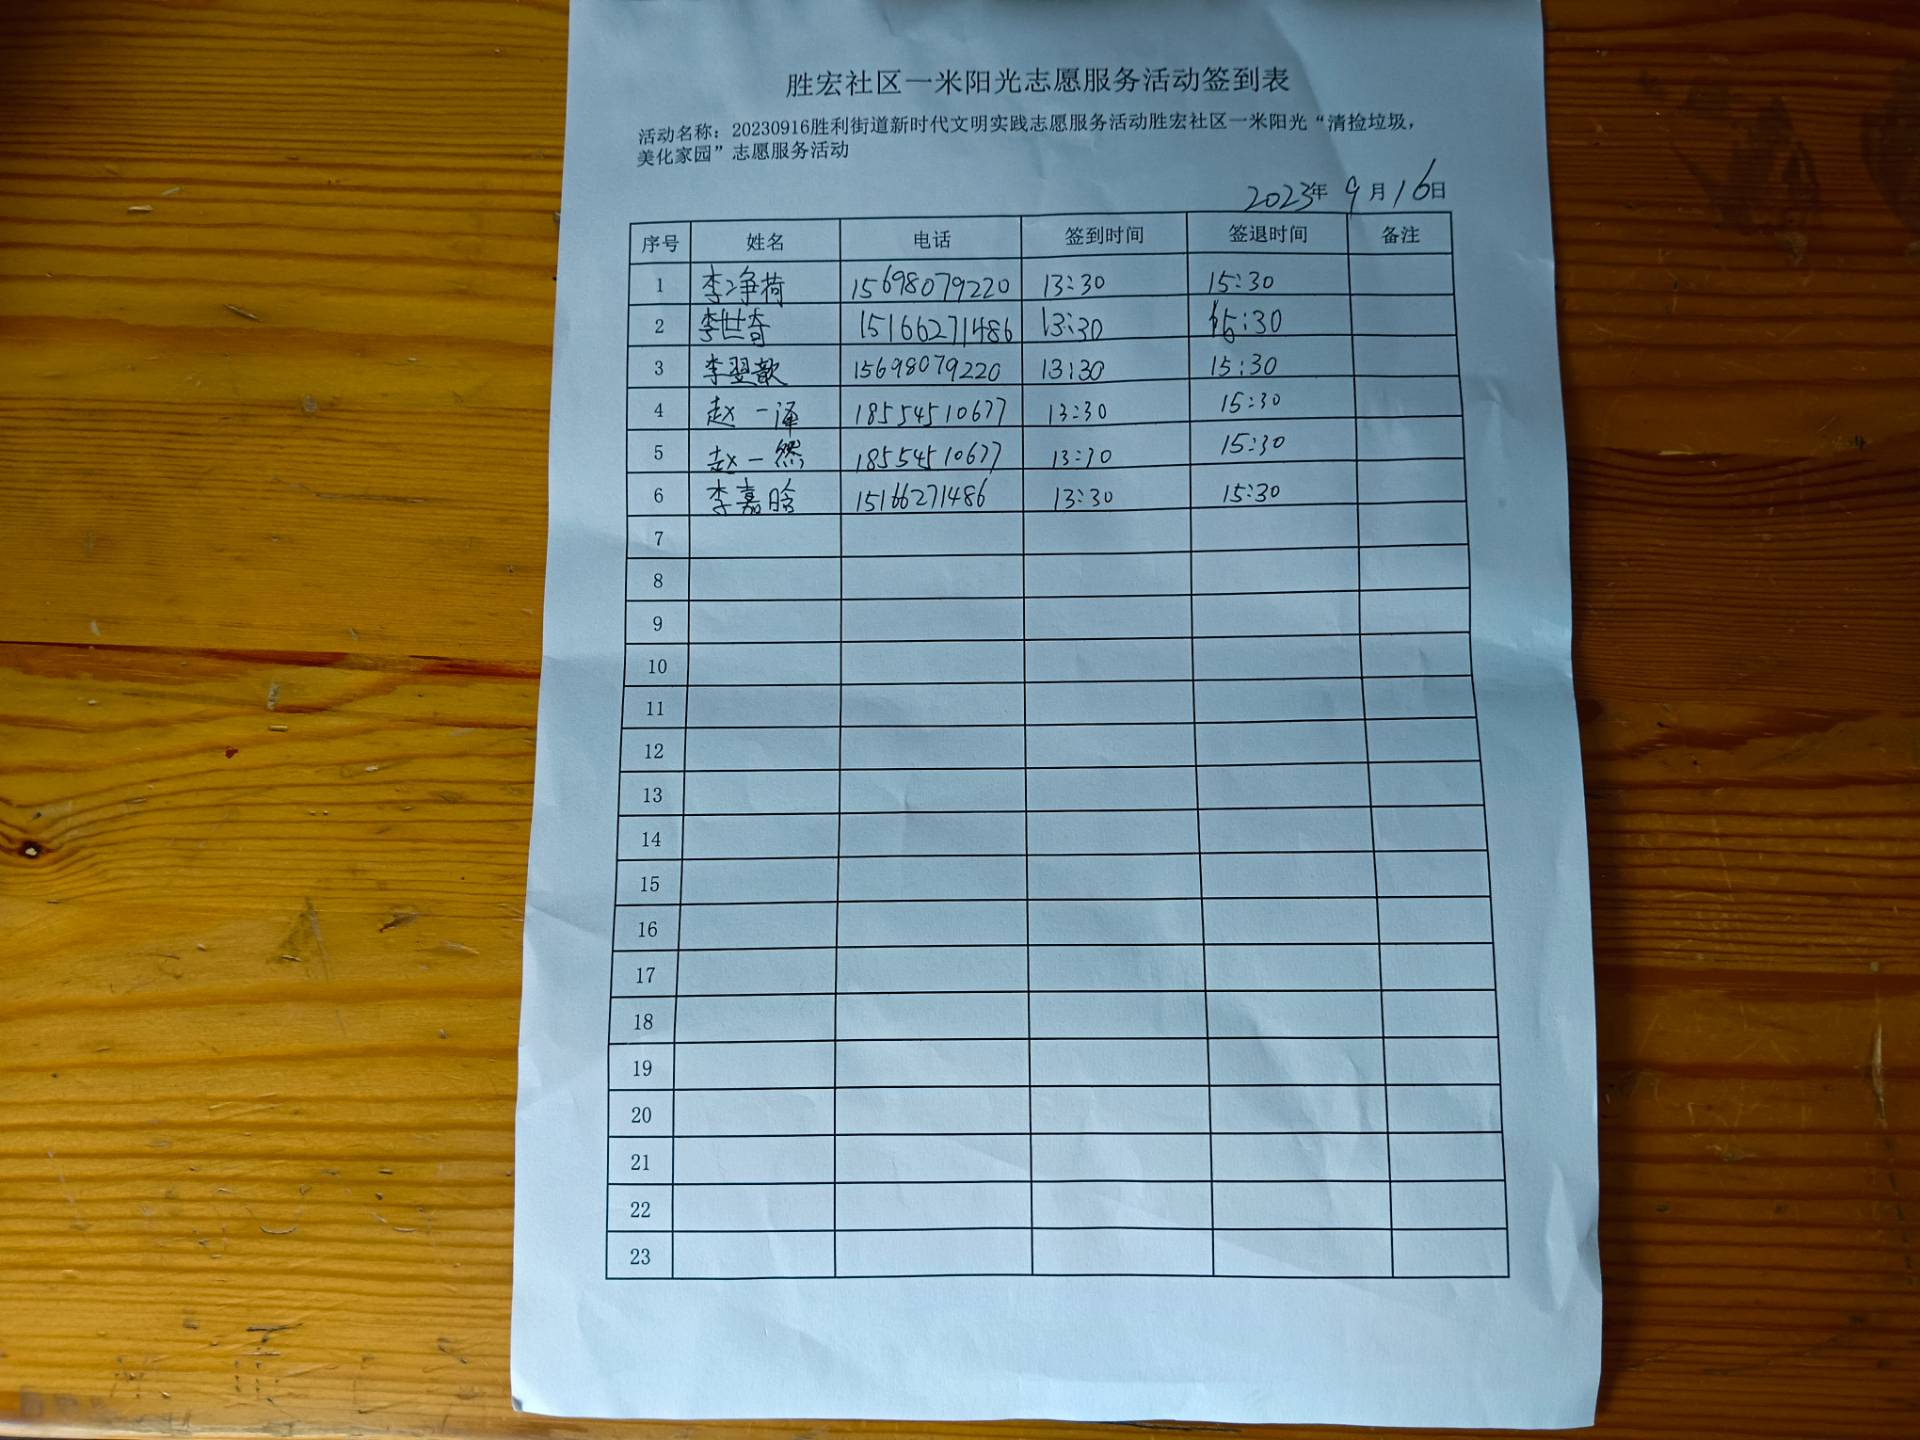 胜宏社区一米阳光志愿服务活动签到表
活动名称：20230916胜利街道新时代文明实践志愿服务活动胜宏社区一米阳光“清捡垃圾，
美化家园”志愿服务活动
2023年 9月16日
序号 姓名 电话 签到时间 签退时间 备注
1 李净荷 15698079220 13:30 15:30
2 李世奇 15166271486 13:30 15:30
3 李翌歆 15698079220 13:30 15:30
4 赵一泽 18554510677 13:30 15:30
5 赵一然 18554510677 13:30 15:30
6 李嘉晗 15166271486 13:30 15:30
7
8
9
10
11
12
13
14
15
16
17
18
19
20
21
22
23